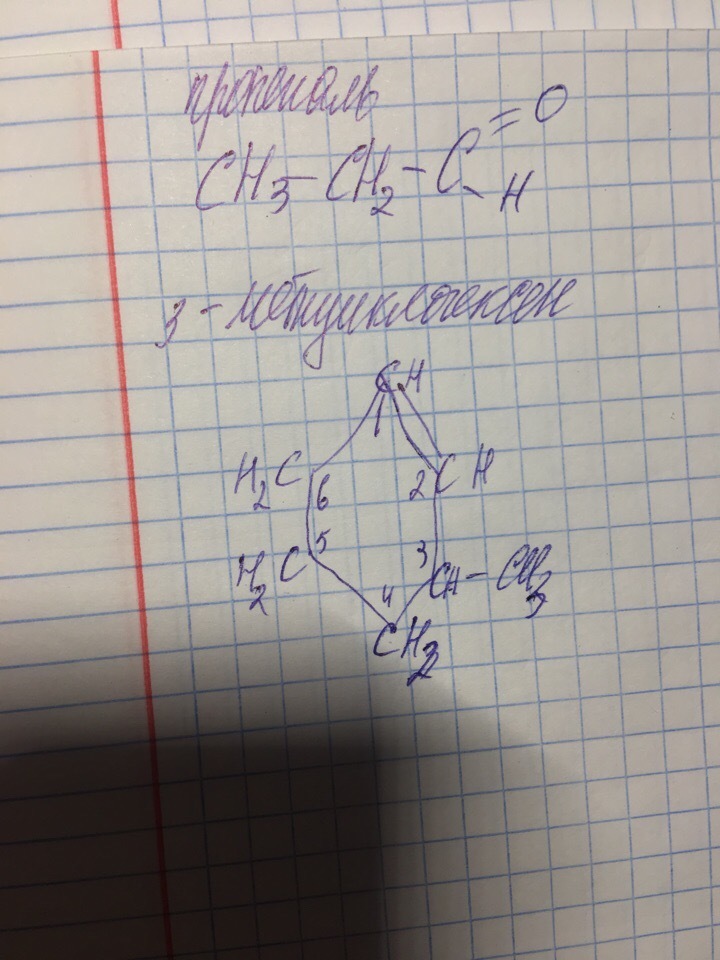 пропаналь
CH3-CH2-C=O
-H
3-метилциклогексен
CH
1
H2C 6 2 CH
H2C 5 3 CH-CH3
4
CH2